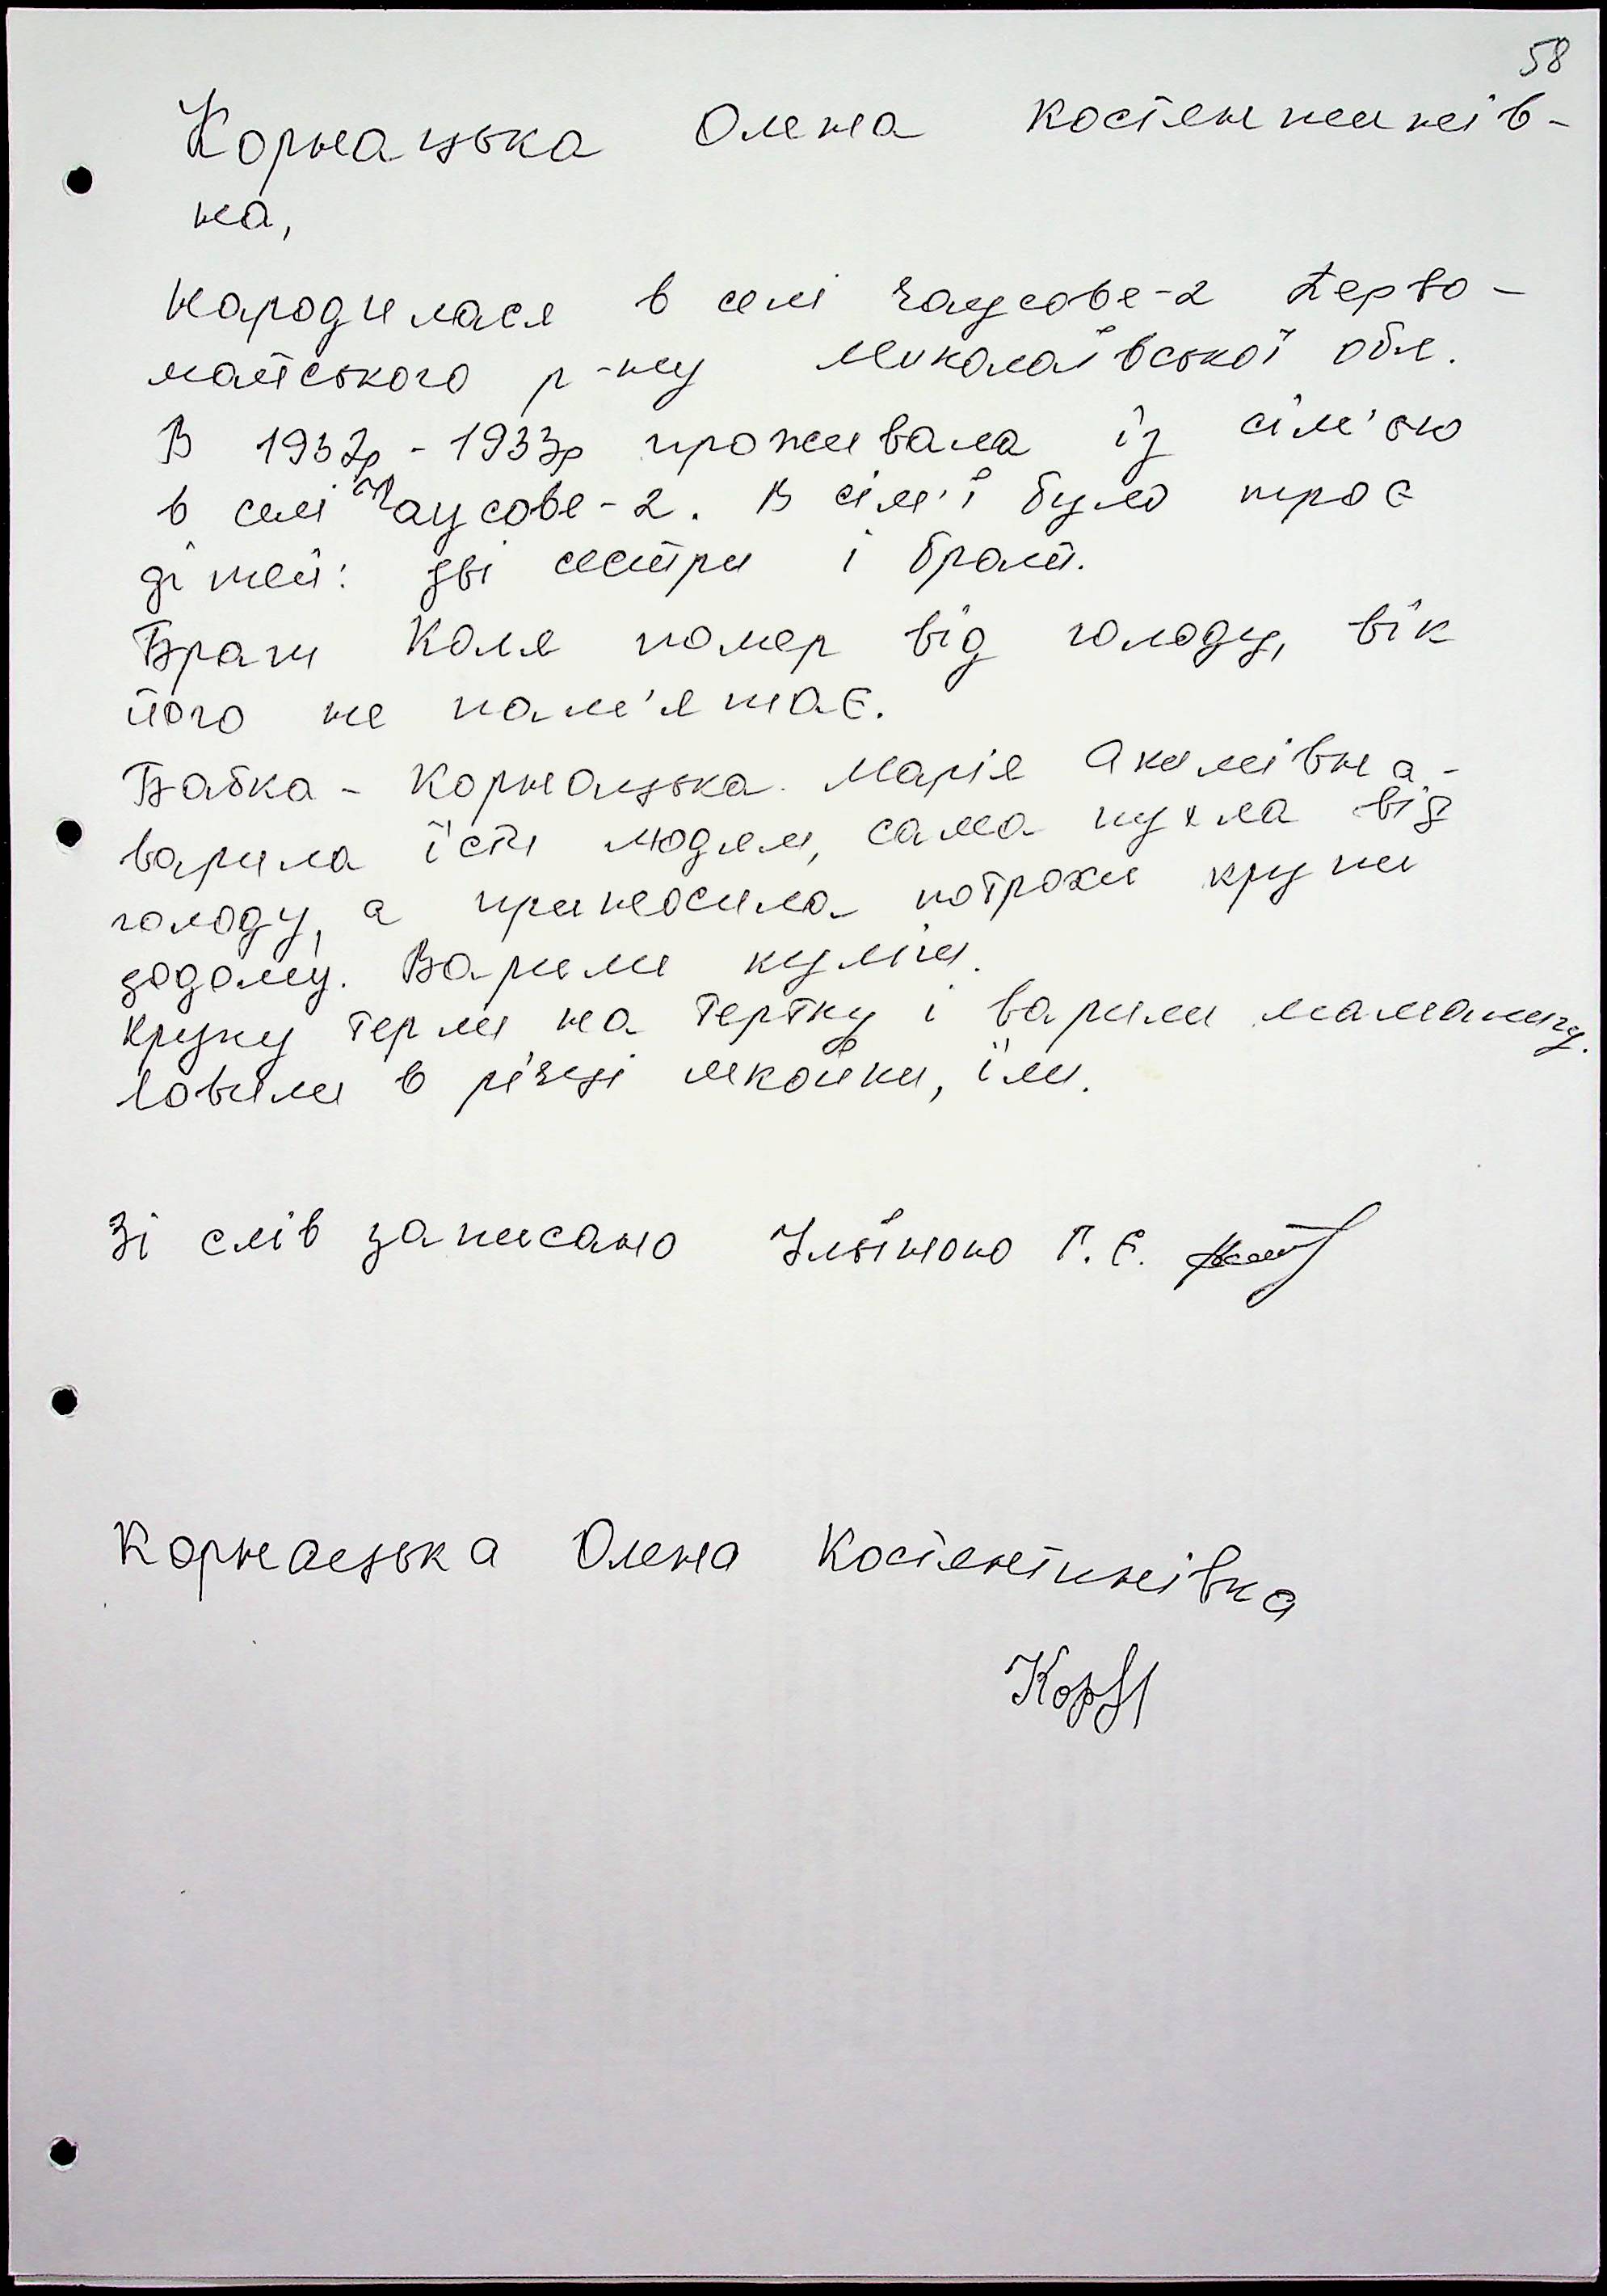 58
Корнацька Олена Костянтинів-
на,
народилася в селі Чаусове-2 Перво-
майського р-ну Миколаївської обл.
В 1932р - 1933р проживала із сім'єю
в селі Чаусове-2. В сім'ї було троє
дітей: дві сестри і брат.
Брат Коля помер від голоду, вік
його не пам'ятає.
Бабка - Корнацька Марія Акимівна -
варила їсти людям, сама пухла від
голоду, а приносила потрохи крупи
додому. Варили куліш.
Крупу терли на тертку і варили мамалигу.
Ловили в річці мкойки, їли.
Зі слів записано Ільїною Г. Є.
Корнацька Олена Костянтинівна
Кор